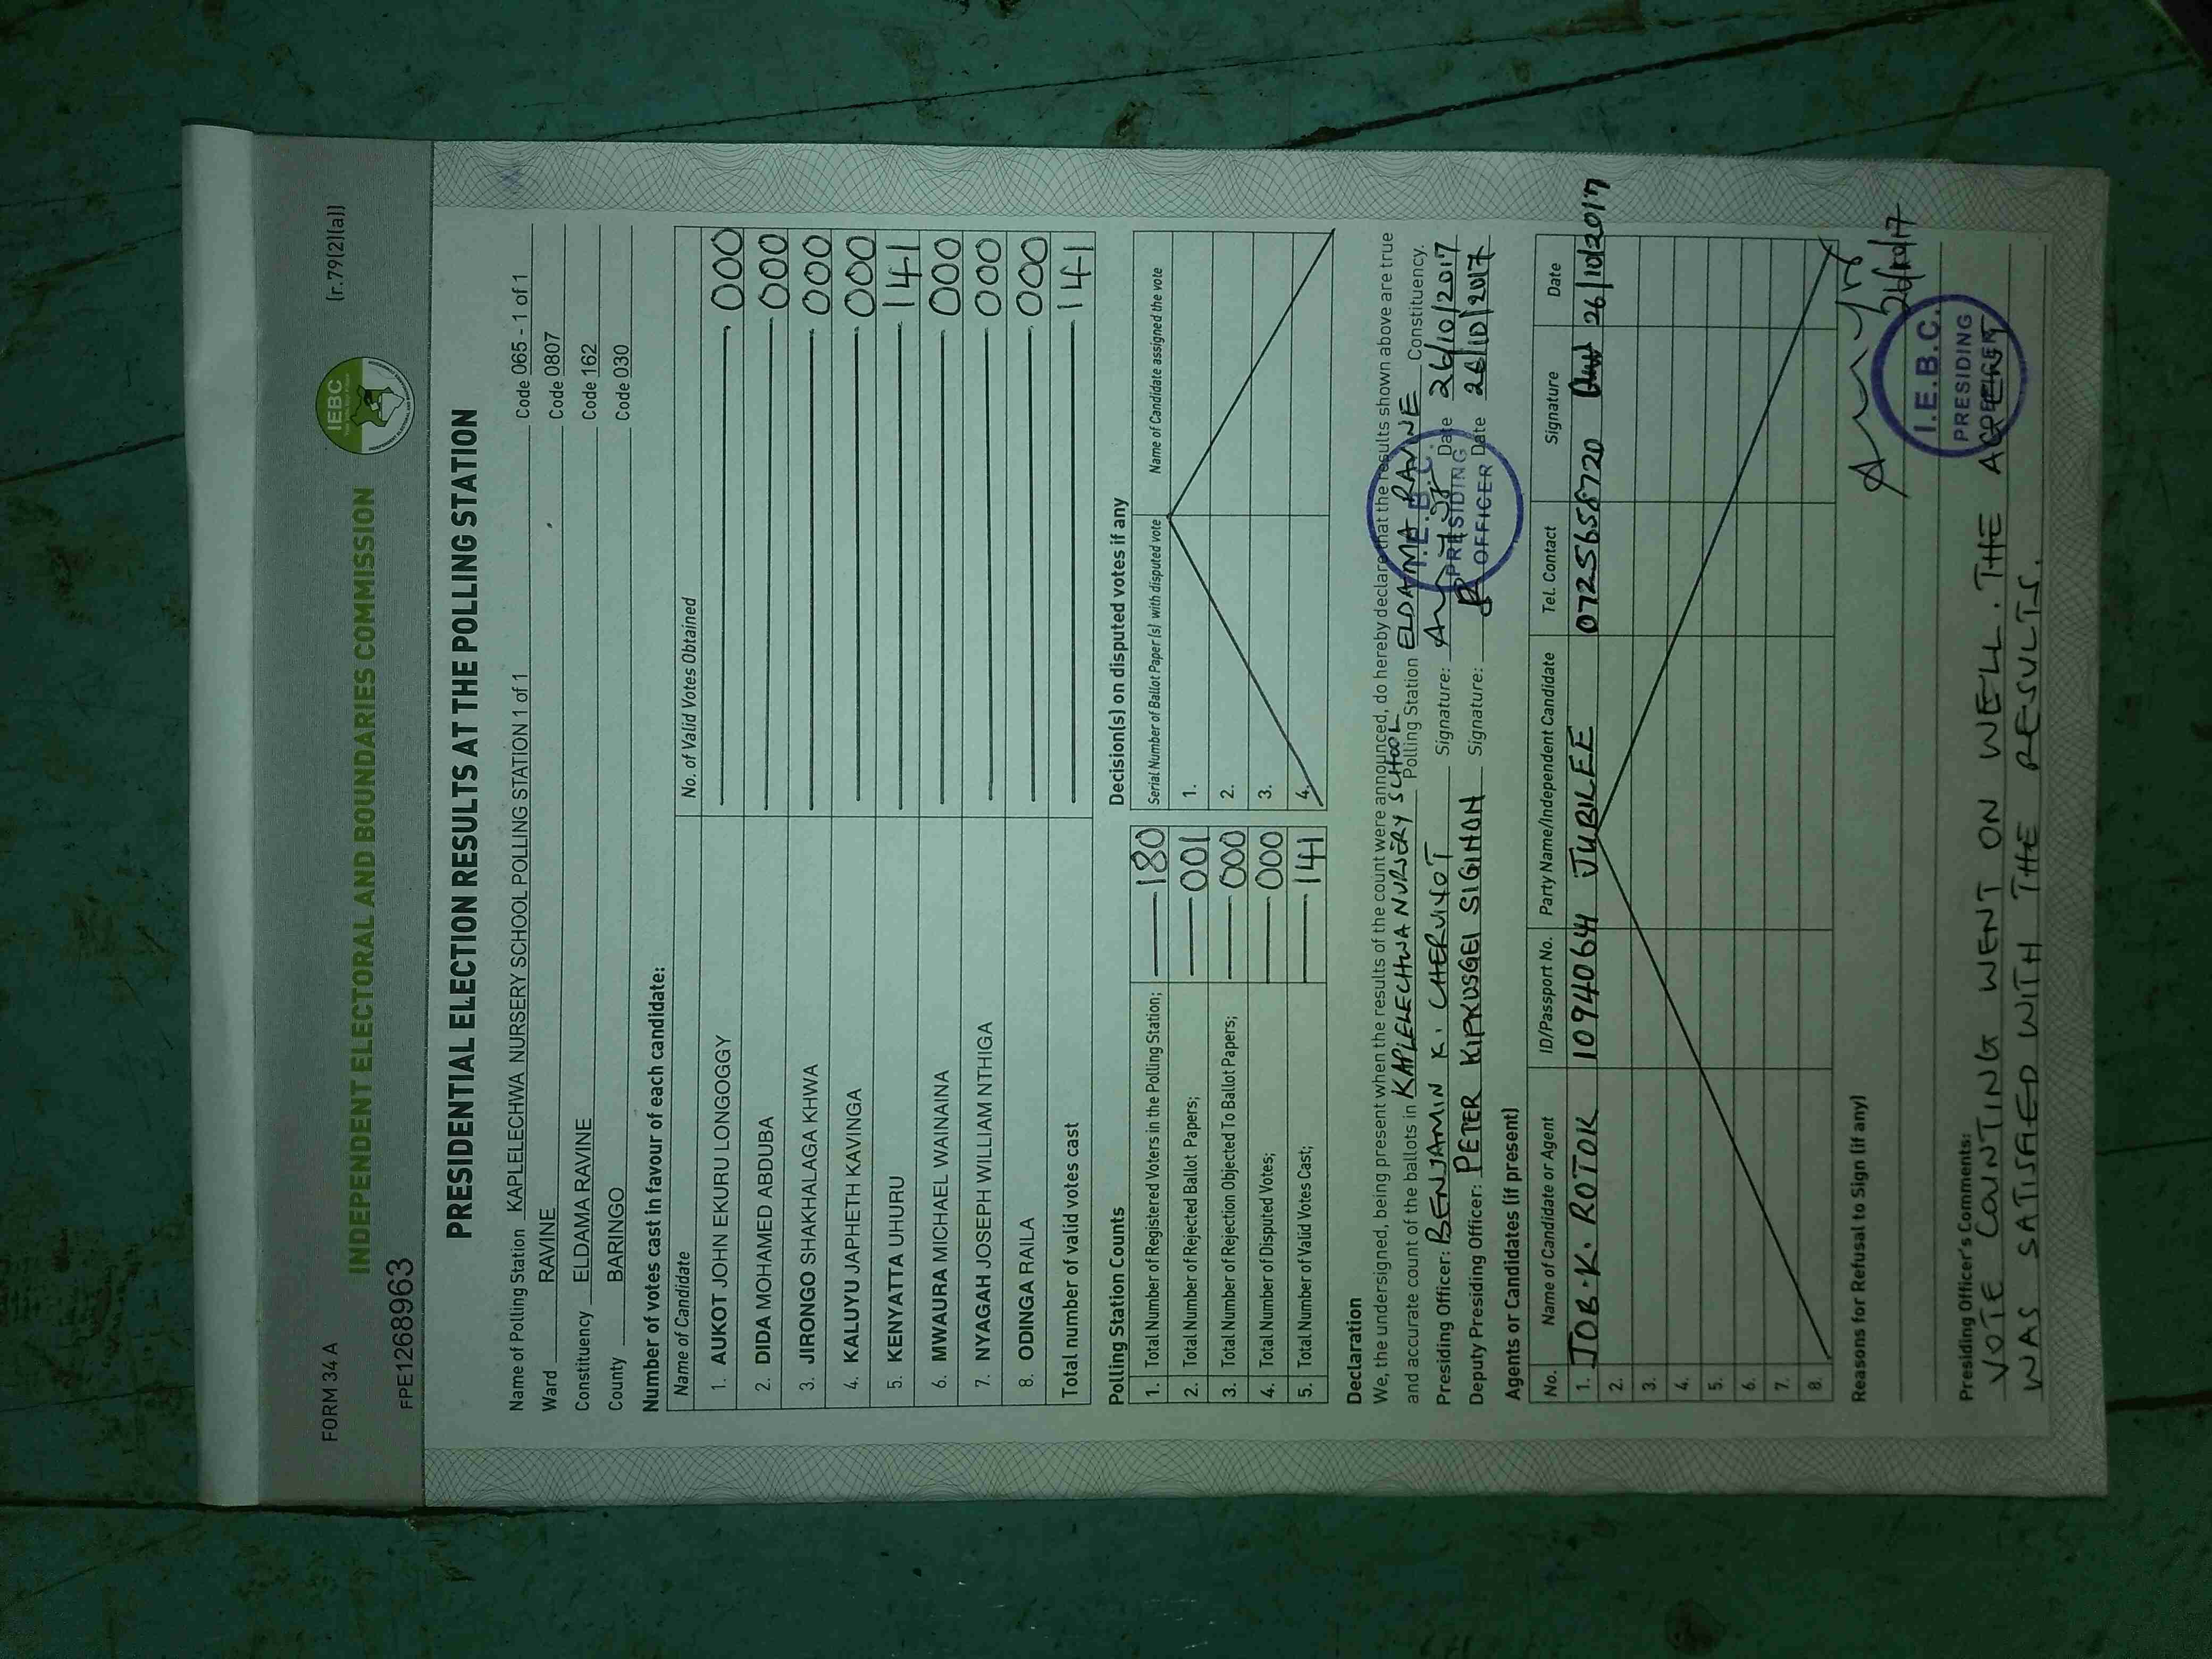 FORM 34 A
[r.79(2)(a)]
IEBC
INDEPENDENT ELECTORAL AND BOUNDARIES COMMISSION
FPE1268963
PRESIDENTIAL ELECTION RESULTS AT THE POLLING STATION
Name of Polling Station KAPLELECHWA NURSERY SCHOOL POLLING STATION 1 of 1 Code 065 - 1 of 1
Ward RAVINE Code 0807
Constituency ELDAMA RAVINE Code 162
County BARINGO Code 030
Number of votes cast in favour of each candidate:
Name of Candidate No. of Valid Votes Obtained
1. AUKOT JOHN EKURU LONGOGGY 000
2. DIDA MOHAMED ABDUBA 000
3. JIRONGO SHAKHALAGA KHWA 000
4. KALUYU JAPHETH KAVINGA 000
5. KENYATTA UHURU 141
6. MWAURA MICHAEL WAINAINA 000
7. NYAGAH JOSEPH WILLIAM NTHIGA 000
8. ODINGA RAILA 000
Total number of valid votes cast 141
Polling Station Counts
1. Total Number of Registered Voters in the Polling Station; 180
2. Total Number of Rejected Ballot Papers; 001
3. Total Number of Rejection Objected To Ballot Papers; 000
4. Total Number of Disputed Votes; 000
5. Total Number of Valid Votes Cast; 141
Decision(s) on disputed votes if any
Serial Number of Ballot Paper(s) with disputed vote Name of Candidate assigned the vote
1.
2.
3.
4.
Declaration
We, the undersigned, being present when the results of the count were announced, do hereby declare that the results shown above are true
and accurate count of the ballots in KAPLELECHWA NURSERY SCHOOL Polling Station ELDAMA RAVINE Constituency.
Presiding Officer: BENJAMIN K. CHERUIYOT Signature: Date 26/10/2017
Deputy Presiding Officer: PETER KIPKUSGEI SIGIHON Signature: Date 26/10/2017
I.E.B.C.
PRESIDING
OFFICER
Agents or Candidates (if present)
No. Name of Candidate or Agent ID/Passport No. Party Name/Independent Candidate Tel. Contact Signature Date
1. JOB. K. ROTOK 10940641 JUBILEE 0725658720 26/10/2017
2.
3.
4.
5.
6.
7.
8.
Reasons for Refusal to Sign (if any)
26/10/17
I.E.B.C.
PRESIDING
Presiding Officer's Comments:
VOTE COUNTING WENT ON WELL. THE
WAS SATISFIED WITH THE RESULTS.